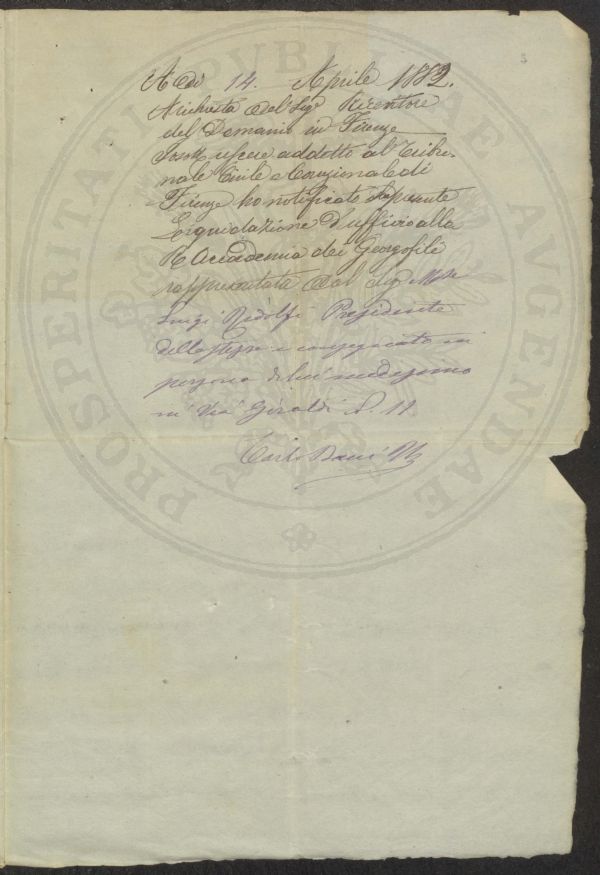 A dì 14. Aprile 1882.
A richiesta del Sigr Ricevitore
del Demanio in Firenze
Io sott usciere addetto al Tribu-
nale Civile e Corezionale di
Firenze ho notificato la presente
Liquidazione d'ufficio alla
R Accademia dei Georgofili
rappresentata dal Sig. Mse
Luigi Ridolfi Presidente
della stessa e consegnata in
persona di lui medesimo
in Via Giraldi N. 11
Carlo
PROSPERITATI PVBLICAE AVGENDAE